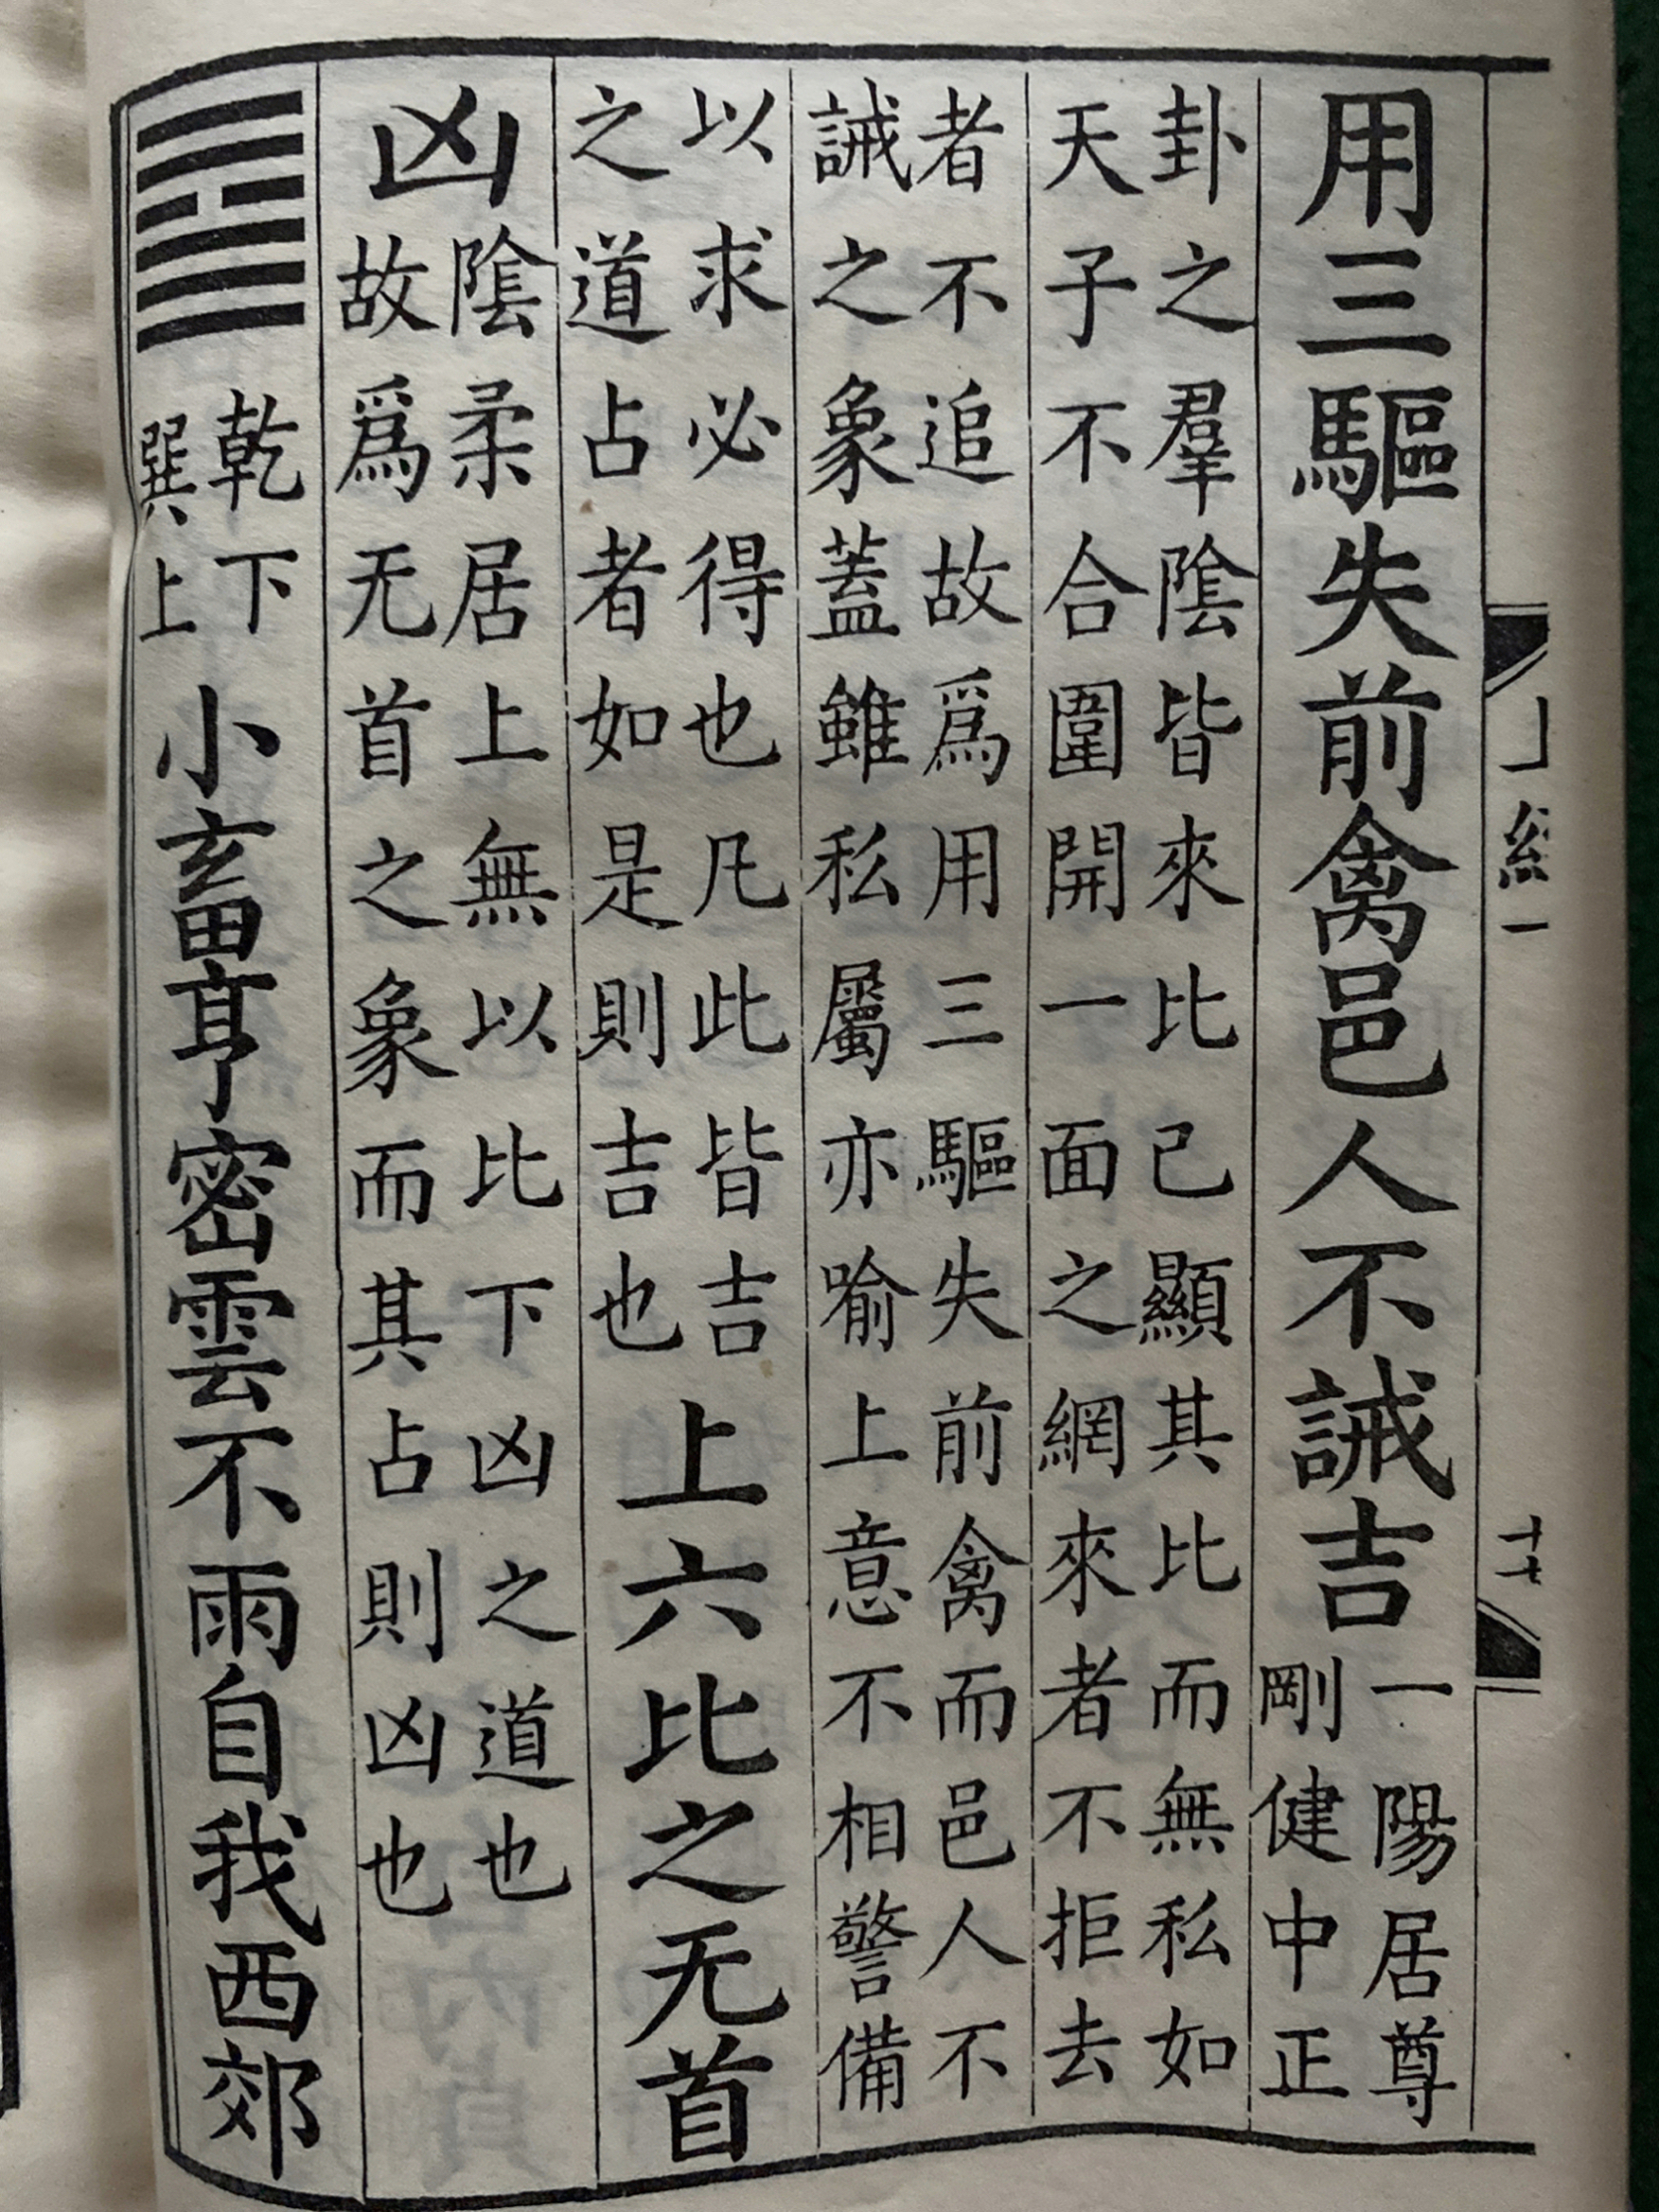 經一
十七
用三驅失前禽邑人不誡吉
一陽居尊
剛健中正
卦之羣隂皆來比己顯其比而無私如
天子不合圍開一面之網來者不拒去
者不追故爲用三驅失前禽而邑人不
誡之象蓋雖私屬亦喻上意不相警備
以求必得也凡此皆吉
之道占者如是則吉也
上六比之无首
凶
隂柔居上無以比下凶之道也
故爲无首之象而其占則凶也
乾下
巽上
小畜亨密雲不雨自我西郊